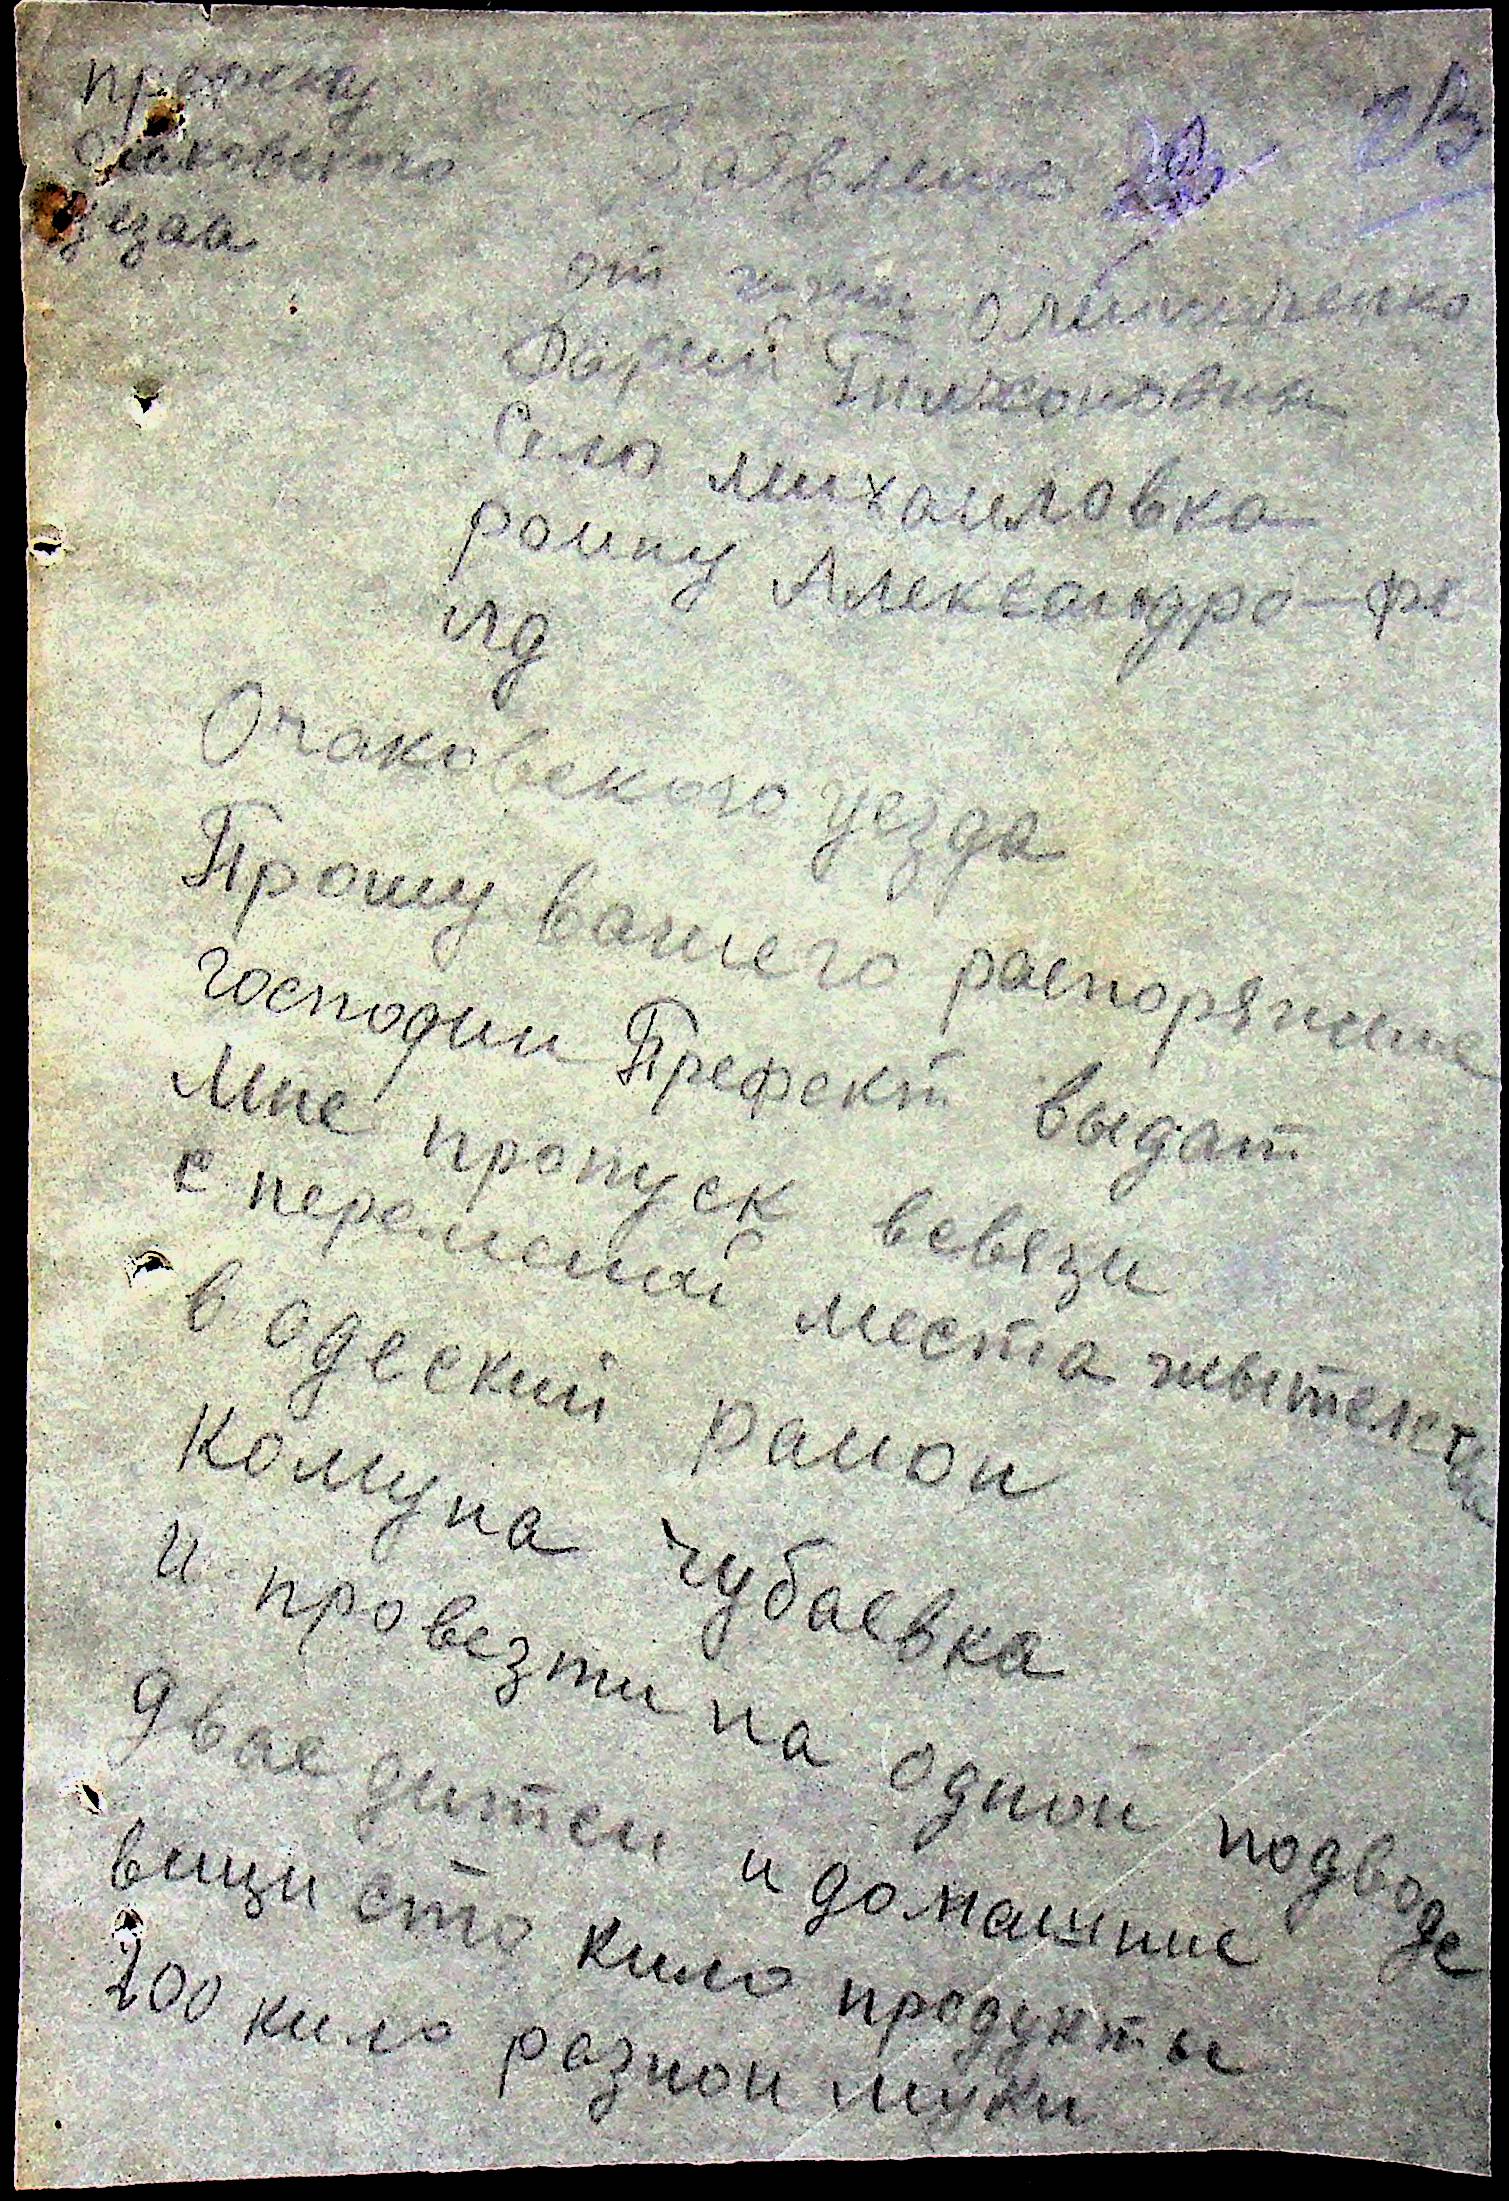 префекту
Очаковского
уезда
Заявление
от
Дарий Тимховтвин
Село михаиловка
раину Александро-фе
лд
Очаковского уезда
Прошу вашего распоряжение
господин Префект выдат
мне пропуск всвязи
с перемений места жытелства
в одеский раион
Комуна чубаевка
и провезти на одной подводе
двае дитеи и домашние
вищи сто кило продукты
200 кило разнои муки